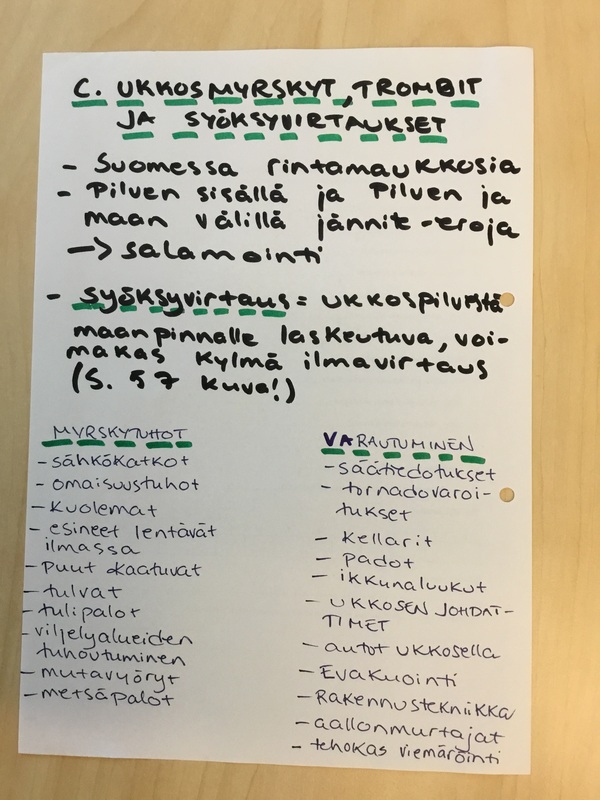 C. UKKOSMYRSKYT, TROMBIT
JA SYÖKSYVIRTAUKSET
- Suomessa rintamaukkosia
- Pilven sisällä ja Pilven ja
maan välillä jännite-eroja
-> salamointi
- Syöksyvirtaus = ukkospilvestä
maanpinnalle laskeutuva, voi-
makas kylmä ilmavirtaus
(S. 57 kuva!)
MYRSKYTUHOT
- sähkökatkot
- omaisuustuhot
- kuolemat
- esineet lentävät
ilmassa
- puut kaatuvat
- tulvat
- tulipalot
- viljelyalueiden
tuhoutuminen
- mutavyöryt
- metsäpalot
VARAUTUMINEN
- säätiedotukset
- tornadovaroi-
tukset
- kellarit
- padot
- ikkunaluukut
- UKKOSEN JOHDAT-
TIMET
- autot ukkosella
- Evakuointi
- Rakennustekniikka
- aallonmurtajat
- tehokas viemäröinti